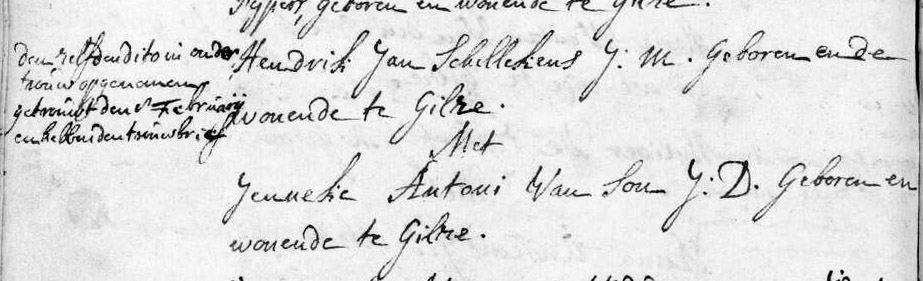 geboren en wonende te Gilze.
den zelfden dito in onder
trouw opgenomen
getrouwt den 8 February
en hebben den trouwbrief
Hendrik Jan Schellekens J: M. Geboren en de
wonende te Gilze.
Met
Jenneke Antoni Van Son J: D. Geboren en
wonende te Gilze.